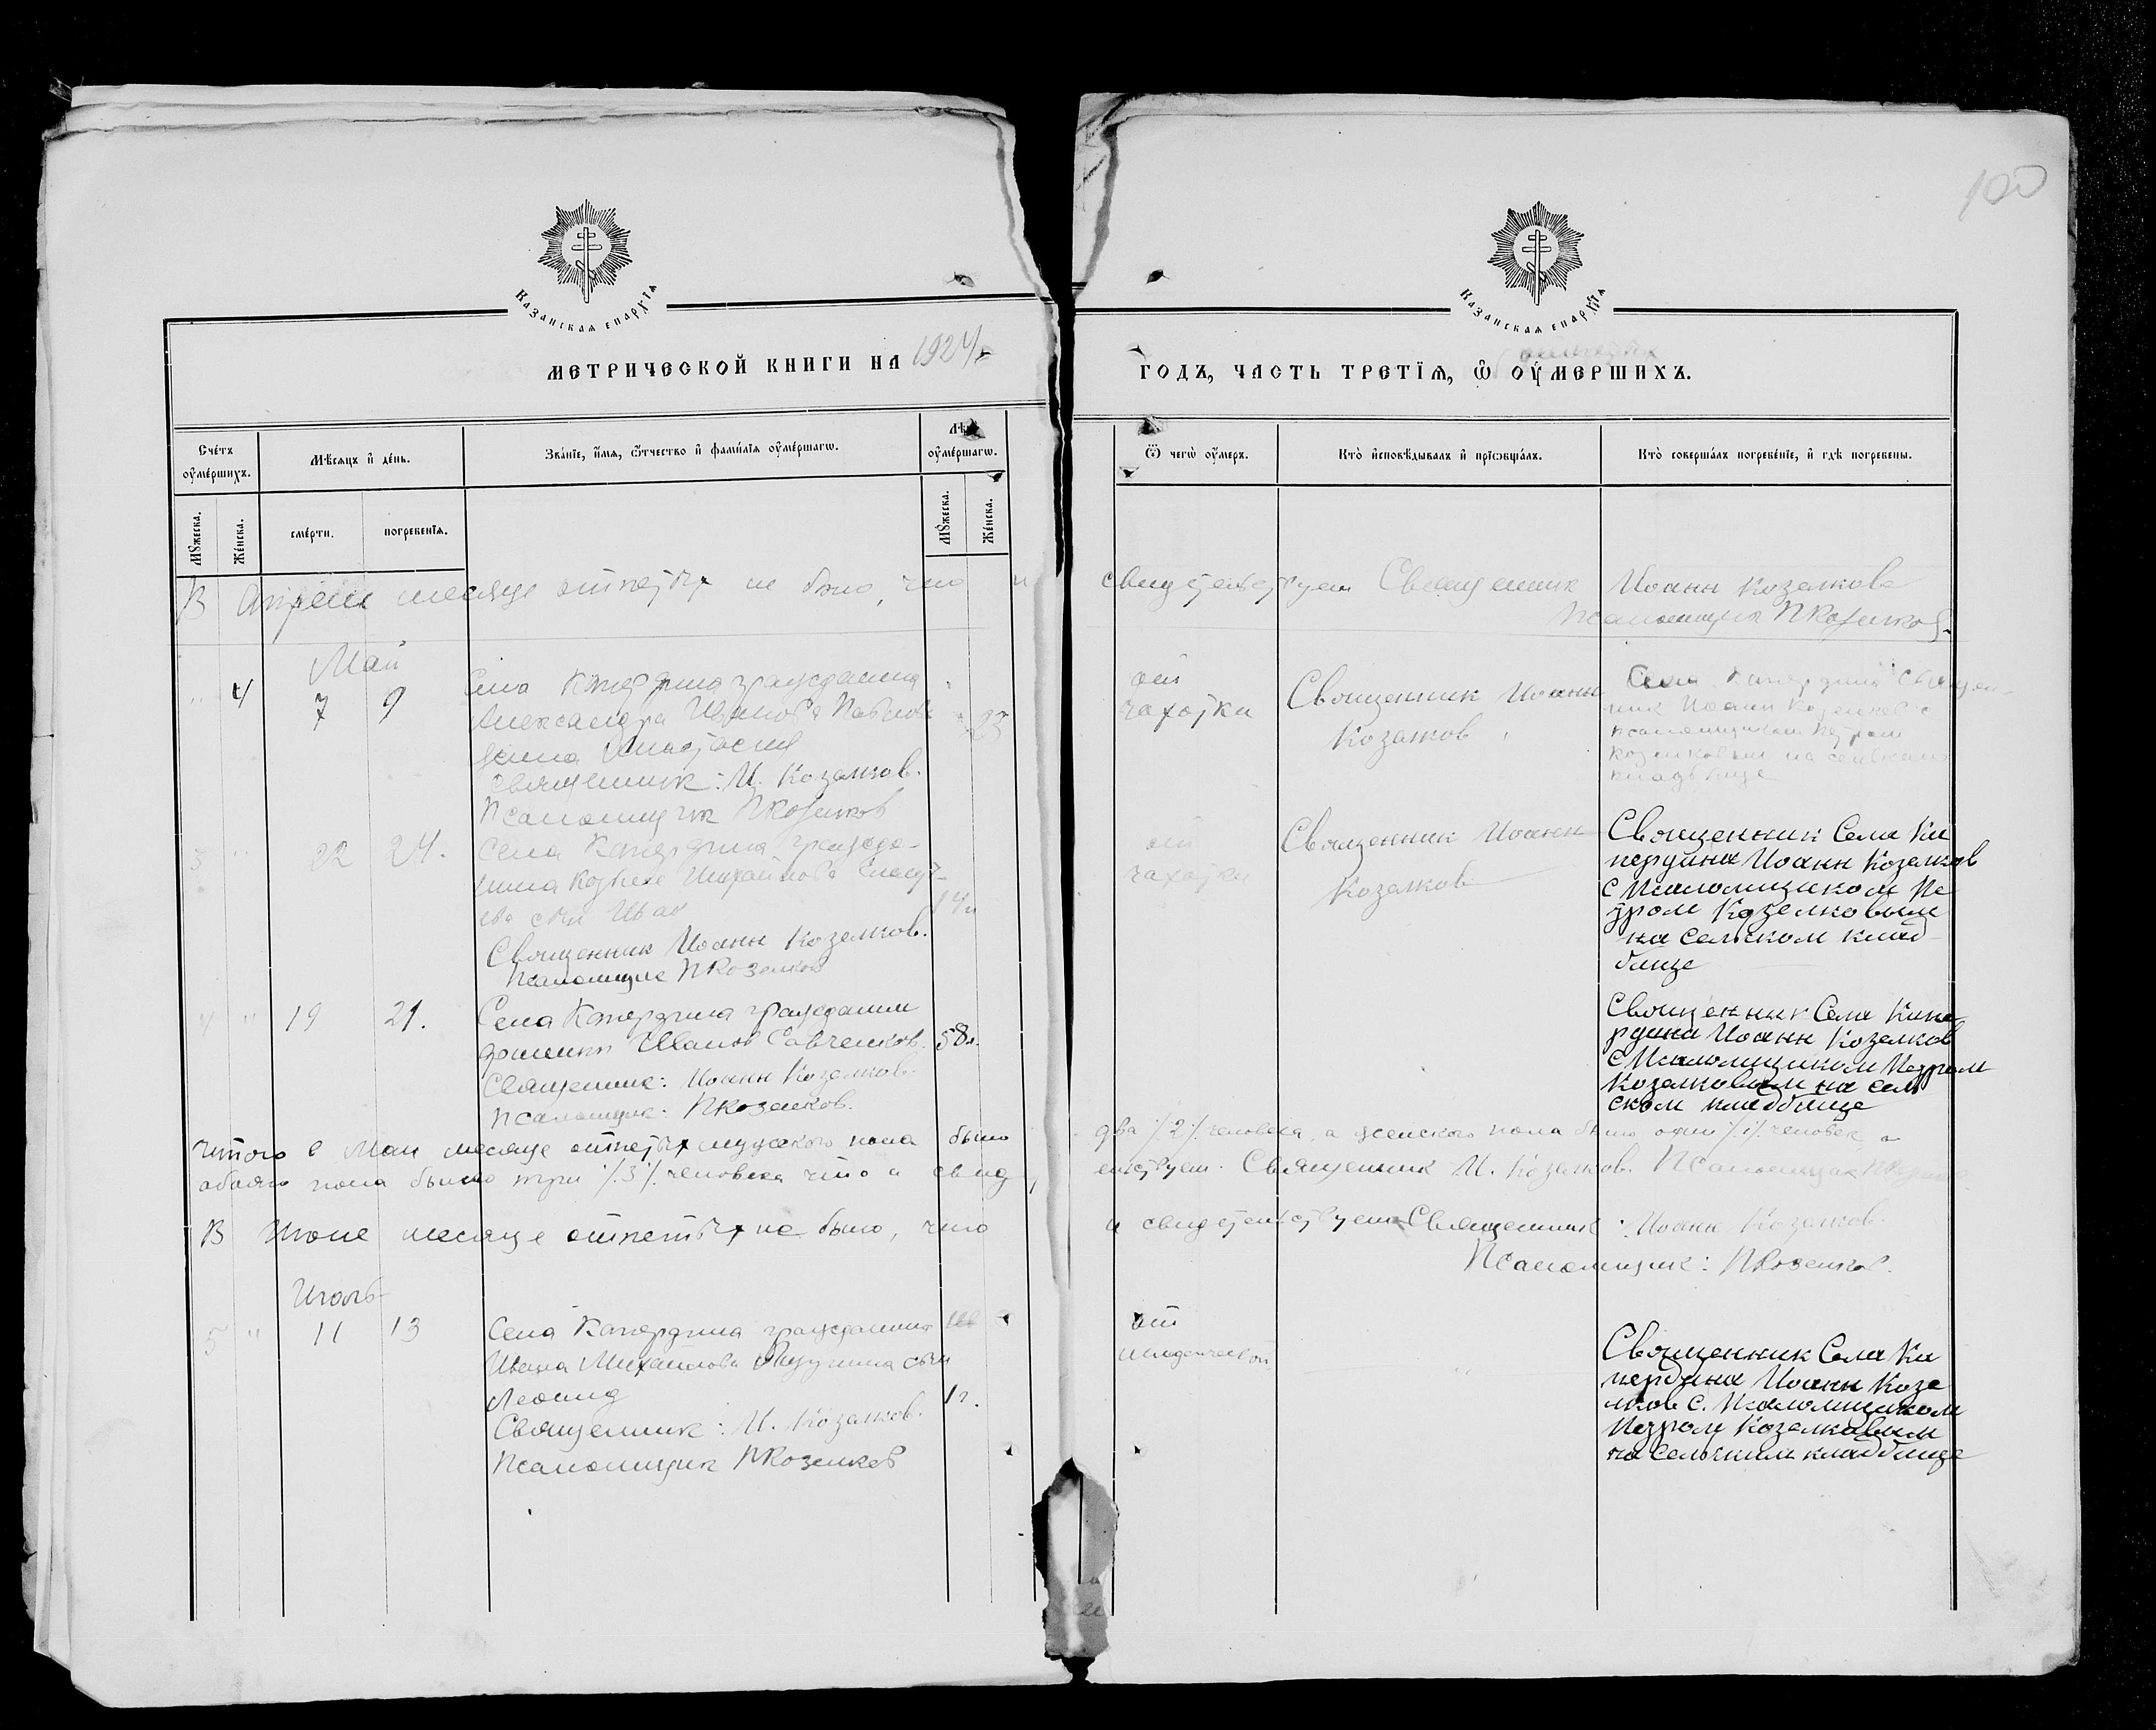 100
Казанская епархїѧ
Казанская епархїѧ
МЕТРИЧЕСКОЙ КНИГИ НА 1924 г.
ГОДЪ, ЧАСТЬ ТРЕТІѦ, Ѡ ОУМЕРШИХЪ.
Счéтъ оумéршихъ.
Мѣ́сяцъ и дéнь.
Звáнїе, и́мѧ, ѻ́тчество и фамѝлїѧ оумéршагѡ.
Лѣ оумéршагѡ.
Ѿ чегѡ̀ оу́меръ.
Ктò и̓сповѣ́дывалъ и̓ прїѡбщáлъ.
Ктò совершáлъ погребéнїе, и̓ гдѣ̀ погребены.
Мꙋжеска.
Жéнска.
смéрти.
погребенїѧ.
Мꙋжеска.
Жéнска.
В Апреле месяце отпетых не было, что и
свидетельствуем Священник Иоанн Козелков
Псаломщик П Козелков
Май
4 7 9 Села Кипердина гражданина
Александра Иванова
жена Анастасия 23
Священник: И. Козелков.
Псаломщик П Козелков
от
чахотки
Священник Иоанн
Козелков
Села Кипердина Священ-
ник Иоанн Козелков с
псаломщиком Петром
Козелковым на сельском
кладбище
3 " 22 24. Села Кипердина гражда-
нина Михайлова
сын Иван 14 л
Священник Иоанн Козелков.
Псаломщик П Козелков
от
чахотки
Священник Иоанн
Козелков
Священник Села Ки
пердина Иоанн Козелков
с Псаломщиком Пе
тром Козелковым
на сельском клад
бище
4 " 19 21. Села Кипердина гражданин
Иванов Савченков. 58 л.
Священник: Иоанн Козелков.
Псаломщик: П Козелков.
Священник Села Кипе
рдина Иоанн Козелков
с Псаломщиком Петром
Козелковым на сель
ском кладбище
Итого в Мае месяце отпетых мужского пола было
два /.2./. человека, а женского пола был один /.1./. человек, а
обоего пола было три /.3./. человека что и свид,
етствуем. Священник И. Козелков. Псаломщик П Козелков.
В Июне месяце отпетых не было, что
и свидетельствуем Священник: Иоанн Козелков.
Псаломщик: П Козелков.
Июль
5 " 11 13 Села Кипердина гражданина
Ивана Михайлова сын
Леонид 1 г.
Священник: И. Козелков.
Псаломщик П Козелков
от
Священник Села Ки
пердина Иоанн Козе
лков с. Псаломщиком
Петром Козелковым
на сельском кладбище